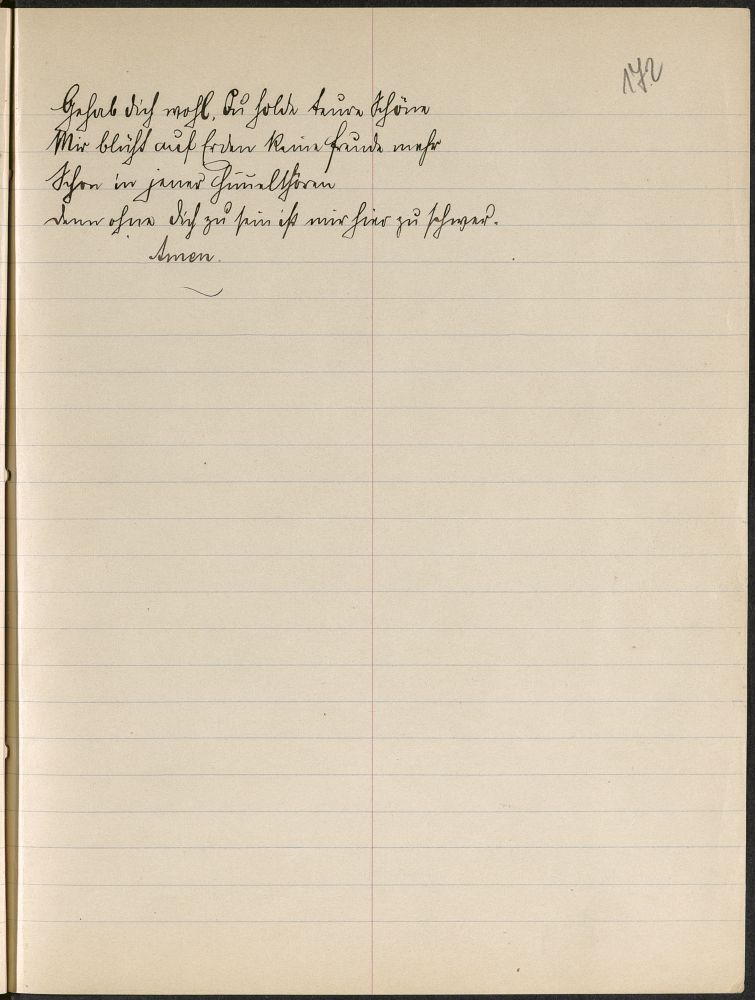 172
Gehab dich wohl, Du holde teure Schöne
Mir blüht auf Erden keine Freude mehr
Schon in jener Himelthören
denn ohne dich zu sein ist mir hier zu schwer.
Amen.